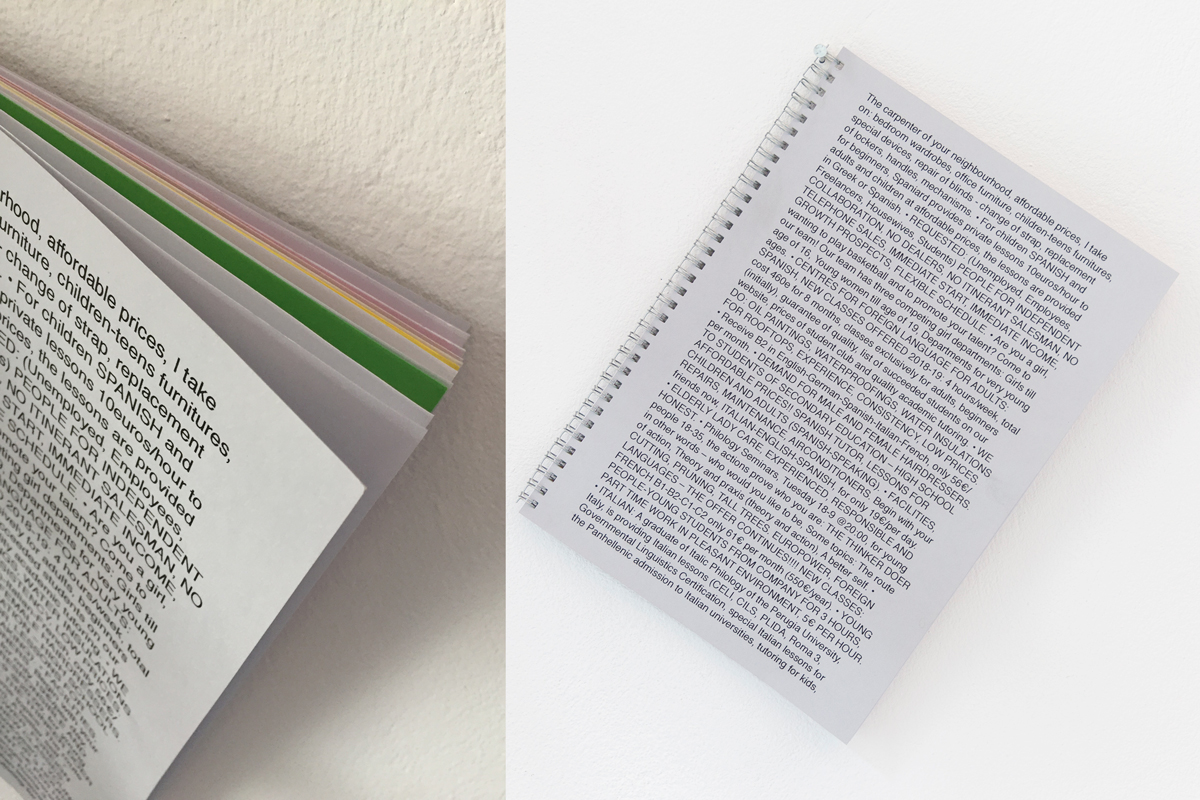 rhood, affordable prices, I take
urniture, children-teens furnitures,
change of strap, replacement
• For children SPANISH and
private lessons 10euros/hour to
prices, the lessons are provided
ED: (Unemployed, Employees,
s) PEOPLE FOR INDEPENDENT
NO ITINERANT SALESMAN, NO
START, IMMEDIATE INCOME.
Are you a girl,
The carpenter of your neighbourhood, affordable prices, I take
on: bedroom wardrobes, office furniture, children-teens furnitures,
special devices, repair of blinds - change of strap, replacement
of lockers, handles, mechanisms • For children SPANISH and
for beginners, Spaniard provides private lessons 10euros/hour to
adults and children at affordable prices, the lessons are provided
in Greek or Spanish. • REQUESTED: (Unemployed, Employees,
Freelancers, Housewives, Students) PEOPLE FOR INDEPENDENT
COLLABORATION. NO DEALERS, NO ITINERANT SALESMAN, NO
TELEPHONE SALES. IMMEDIATE START, IMMEDIATE INCOME.
GROWTH PROSPECTS, FLEXIBLE SCHEDULE. • Are you a girl,
wanting to play basketball and to promote your talent? Come to
our team! Our team has three competing girl departments: Girls till
age of 16, Young women till age of 19, Departments for very young
ages. • CENTRES FOR FOREIGN LANGUAGE FOR ADULTS:
SPANISH, NEW CLASSES OFFERED 2018-19: 4 hours/week, total
cost 460e for 8 months, classes exclusively for adults, beginners
(initially), guarantee of quality, list of succeeded students on our
website, prices of student club and quality academic tutoring. • WE
DO: OIL PAINTINGS, WATERPROOFINGS, WATER INSULATIONS
FOR ROOFTOPS, EXPERIENCE, CONSISTENCY, LOW PRICES.
• Receive B2, in English-German-Spanish-Italian-French, only 56€/
per month • DEMAND FOR MALE AND FEMALE HAIRDRESSERS.
TO STUDENTS OF SECONDARY EDUCATION – HIGH SCHOOL
AFFORDABLE PRICES!! SPANISH TUTOR, LESSONS FOR
CHILDREN AND ADULTS (SPANISH-SPEAKING) • FACILITIES
REPAIRS, MAINTENANCE, AIRCONDITIONERS. Begin with your
friends now, ITALIAN-ENGLISH-SPANISH, for only 19€/per day
• ELDERLY LADY CARE, EXPERIENCED, RESPONSIBLE AND
HONEST. • Philology Seminars, Tuesday 18-9 @20:00, for young
people 18-35, the actions prove who you are: THE THINKER DOER
in other words – who would you like to be. Some topics: The route
of action, Theory and praxis (theory and action) A better self. •
CUTTING, PRUNING, TALL TREES. EUROPOWER, FOREIGN
LANGUAGES – THE OFFER CONTINUES!!!! NEW CLASSES:
FRENCH B1-B2-C1-C2 only 61€ per month (550€/year) • YOUNG
PEOPLE-YOUNG STUDENTS FROM COMPANY FOR 3 HOURS,
PART TIME WORK IN PLEASANT ENVIRONMENT, 5€ PER HOUR.
• ITALIAN. A graduate of Italic Philology of the Perugia University,
Italy, is providing Italian lessons (CELI, CILS, PLIDA, Roma 3,
Governmental Linguistics Certification, special Italian lessons for
the Panhellenic admission to Italian universities, tutoring for kids,